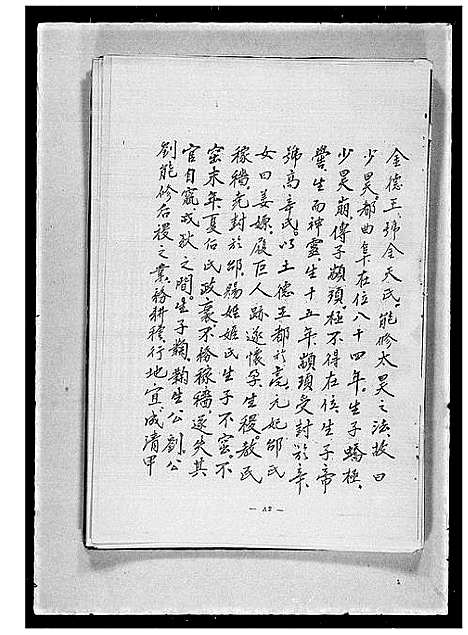 金德王、號金天氏、能修太昊之法故曰
少昊、都曲阜在位八十四年、生子蟜極、
少昊崩、傳子顓頊、極不得在位、生子帝
嚳、生而神靈生十五年、顓頊受封於辛、
號高辛氏。以土德王都於亳、元妃邰氏
女曰姜嫄、履巨人跡遂懷孕、生稷、教民
稼穡、堯封於邰、賜姓姬氏生子不窋。不
窋末年、夏后氏政衰、不務稼穡、遂失其
官自竄、戎狄之間。生子鞠、鞠生公劉、公
劉能修后稷之業、務耕種、行地宜、成清甲